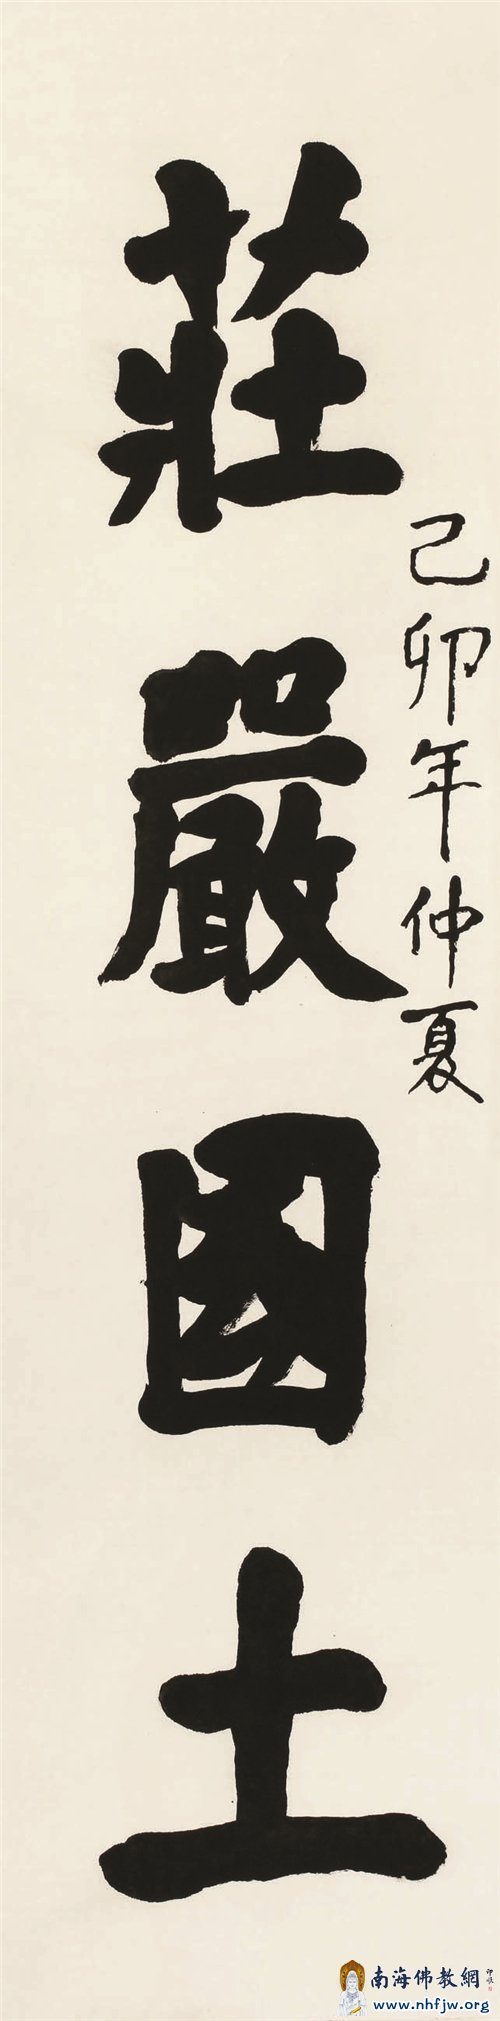 己卯年仲夏
莊嚴國土
南海佛教網
www.nhfjw.org